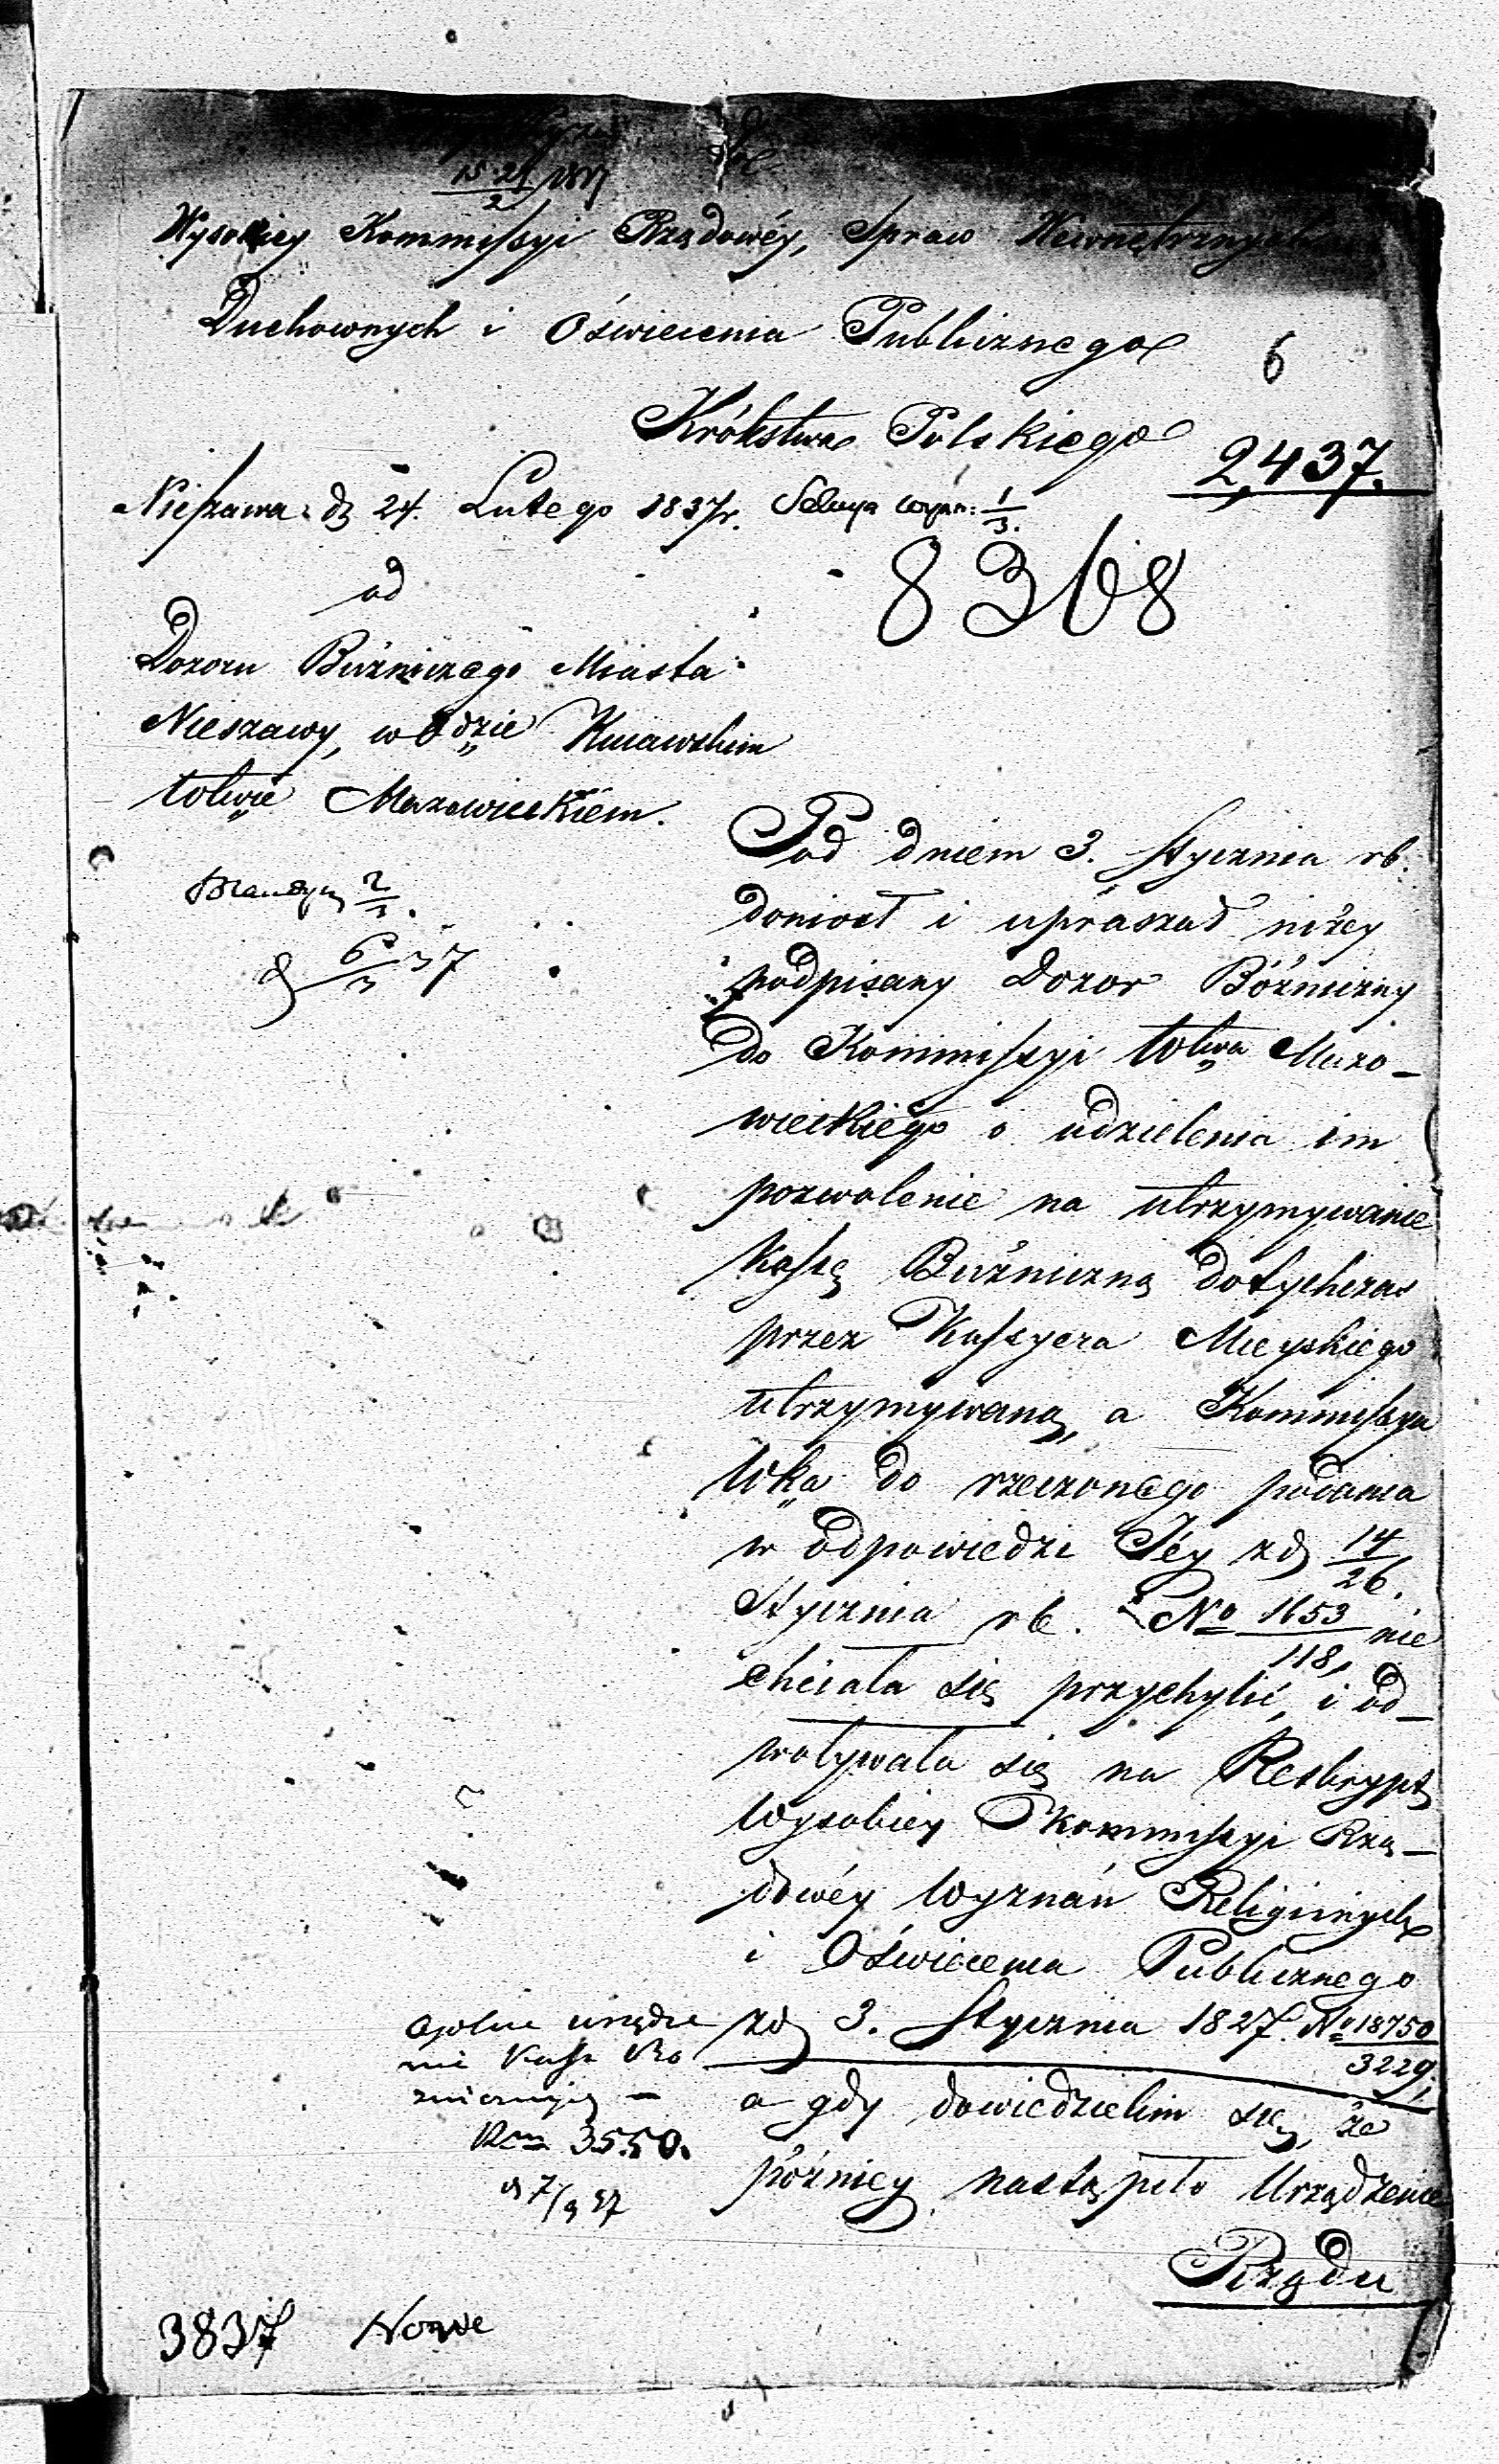 Wysokiey Kommissyi Rządowéy, Spraw Wewnętrznych
Duchownych i Oświecenia Publicznego
6
Królestwa Polskiego
2,437.
Nieszawa d. 24. Lutego 1837r. Sekcya Wyzn: 1/3.
8368
od
Dozoru Bużniczego Miasta
Nieszawy, w Odzie Kuiawskim
Wotwie Mazowieckiém.
Pod dniem 3. Stycznia rb.
doniosł i upraszał niżey
podpisany Dozor Bóżniczny
do Kommissyi Wotwa Mazo-
wieckiégo o udzielenia im
pozwolenie na utrzymywanie
Kassę Bużniczną dotychczas
przez Kassyera Mieyskiego
utrzymywaną, a Kommissya
Wka do rzeczonego podania
w odpowiedzi Jéy zd 14/26.
Stycznia rb. No 1653/118, nie
chciała się przychylić, i od-
wotywała się na Reskrypt
Wysokiey Kommissyi Rzą-
dowéy Wyznań Religiinych
i Oświecenia Publicznego
zd 3. Stycznia 1827. No 18750/3229,
a gdy dowiedzielim się, że
późniey nastąpiło Urządzenie
Rządu
6/3 37
3550.
3837